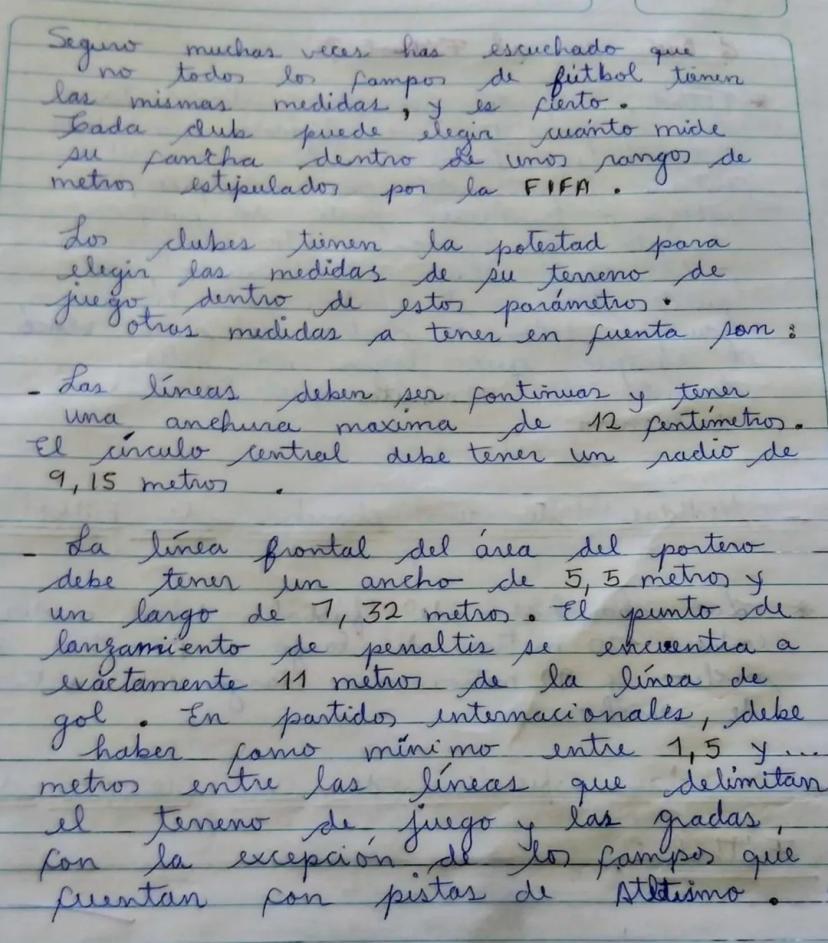 Seguro muchas veces has escuchado que
no todos los campos de fútbol tienen
las mismas medidas, y es cierto.
Cada club puede elegir cuánto mide
su cancha dentro de unos rangos de
metros estipulados por la FIFA.
Los clubes tienen la potestad para
elegir las medidas de su terreno de
juego dentro de estos parámetros.
otras medidas a tener en cuenta son:
- Las líneas deben ser continuas y tener
una anchura maxima de 12 centímetros.
El círculo central debe tener un radio de
9,15 metros.
- La línea frontal del área del portero
debe tener un ancho de 5,5 metros y
un largo de 7,32 metros. El punto de
lanzamiento de penaltis se encuentra a
exáctamente 11 metros de la línea de
gol. En partidos internacionales, debe
haber como mínimo entre 1,5 y ...
metros entre las líneas que delimitan
el terreno de juego y las gradas,
con la excepción de los campos que
cuentan con pistas de